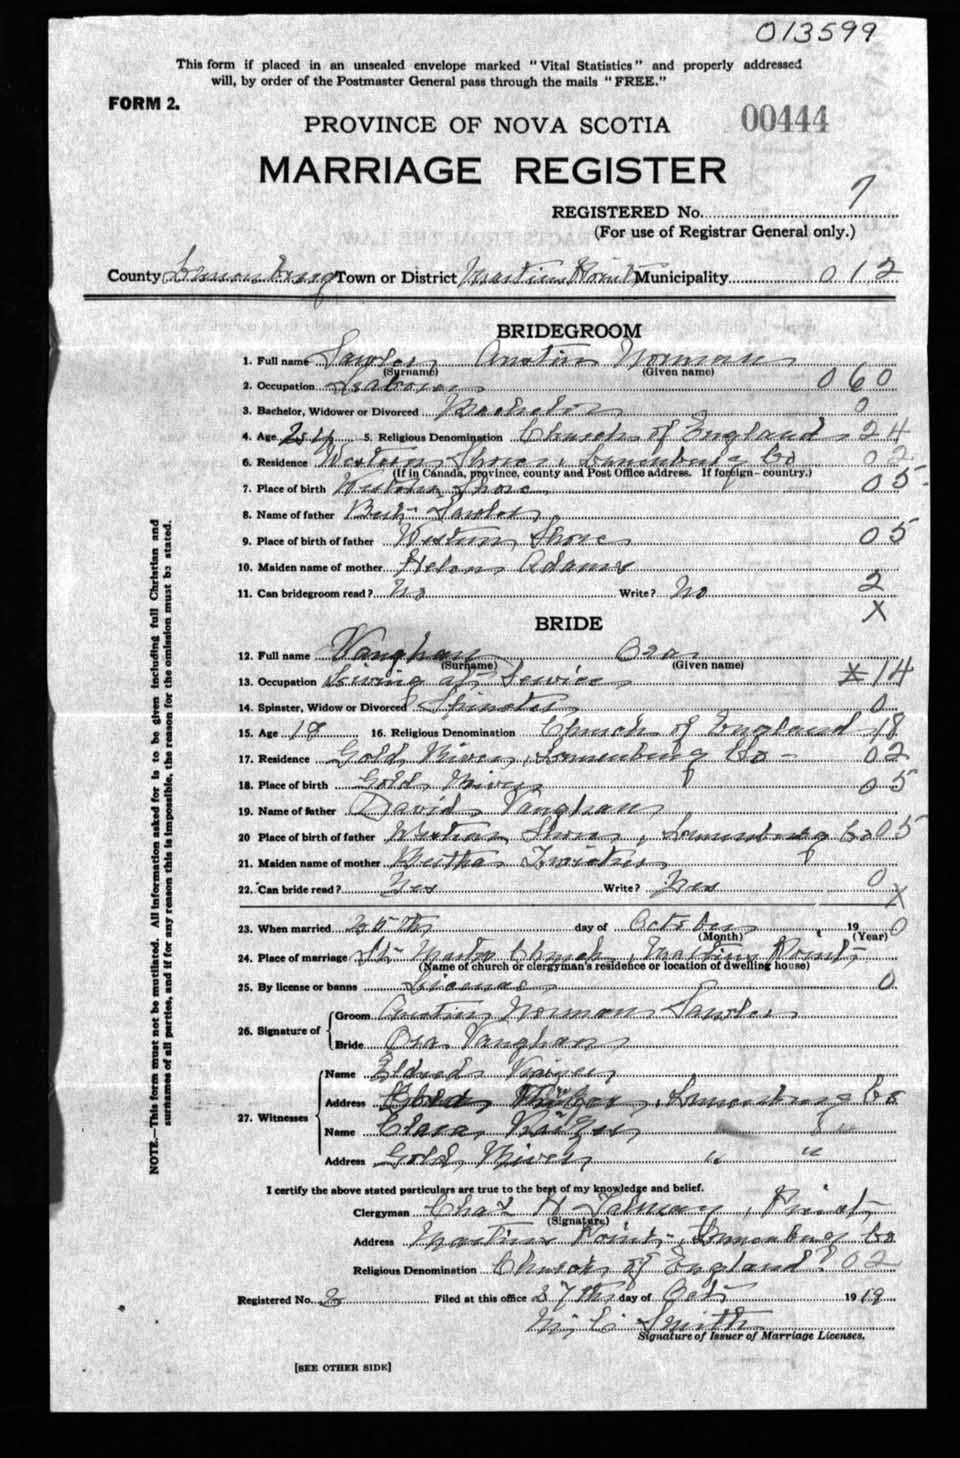 013599
This form if placed in an unsealed envelope marked "Vital Statistics" and properly addressed
will, by order of the Postmaster General pass through the mails "FREE."
FORM 2.
00444
PROVINCE OF NOVA SCOTIA
MARRIAGE REGISTER
REGISTERED No. 7
(For use of Registrar General only.)
County Lunenburg Town or District Martins Point Municipality 012
BRIDEGROOM
1. Full name Sawler Austin Norman
(Surname) (Given name)
2. Occupation Labourer 060
3. Bachelor, Widower or Divorced Bachelor 0
4. Age 24 5. Religious Denomination Church of England 24
6. Residence Western Shore, Lunenburg Co 02
(If in Canada, province, county and Post Office address. If foreign- country.)
7. Place of birth Western Shore 05
8. Name of father Sawler
9. Place of birth of father Western Shore 05
10. Maiden name of mother Helen Adams
11. Can bridegroom read? No Write? No 2
X
BRIDE
12. Full name Vaughan Ora
(Surname) (Given name)
13. Occupation Living at Service X14
14. Spinster, Widow or Divorced Spinster 0
15. Age 18 16. Religious Denomination Church of England 18
17. Residence Gold River, Lunenburg Co - 02
18. Place of birth Gold River 05
19. Name of father David Vaughan
20 Place of birth of father Western Shore, Lunenburg Co 05
21. Maiden name of mother Bertha
22. Can bride read? Yes Write? Yes 0
X
23. When married 25th day of October 19 0
(Month) (Year)
24. Place of marriage St. Church, Martins Point,
(Name of church or clergyman's residence or location of dwelling house)
25. By license or banns License 0
26. Signature of Groom Austin Norman Sawler
Bride Ora Vaughan
27. Witnesses Name
Address Lunenburg Co
Name Clara
Address Gold River " "
I certify the above stated particulars are true to the best of my knowledge and belief.
Clergyman Chas H Talmay, Priest,
(Signature)
Address Martins Point, Lunenburg Co
Religious Denomination Church of England 02
Registered No. 2 Filed at this office 27th day of Oct 1919
Smith
Signature of Issuer of Marriage Licenses.
[SEE OTHER SIDE]
NOTE.—This form must not be mutilated. All information asked for is to be given including full Christian and
surnames of all parties, and if for any reason this is impossible, the reason for the omission must be stated.